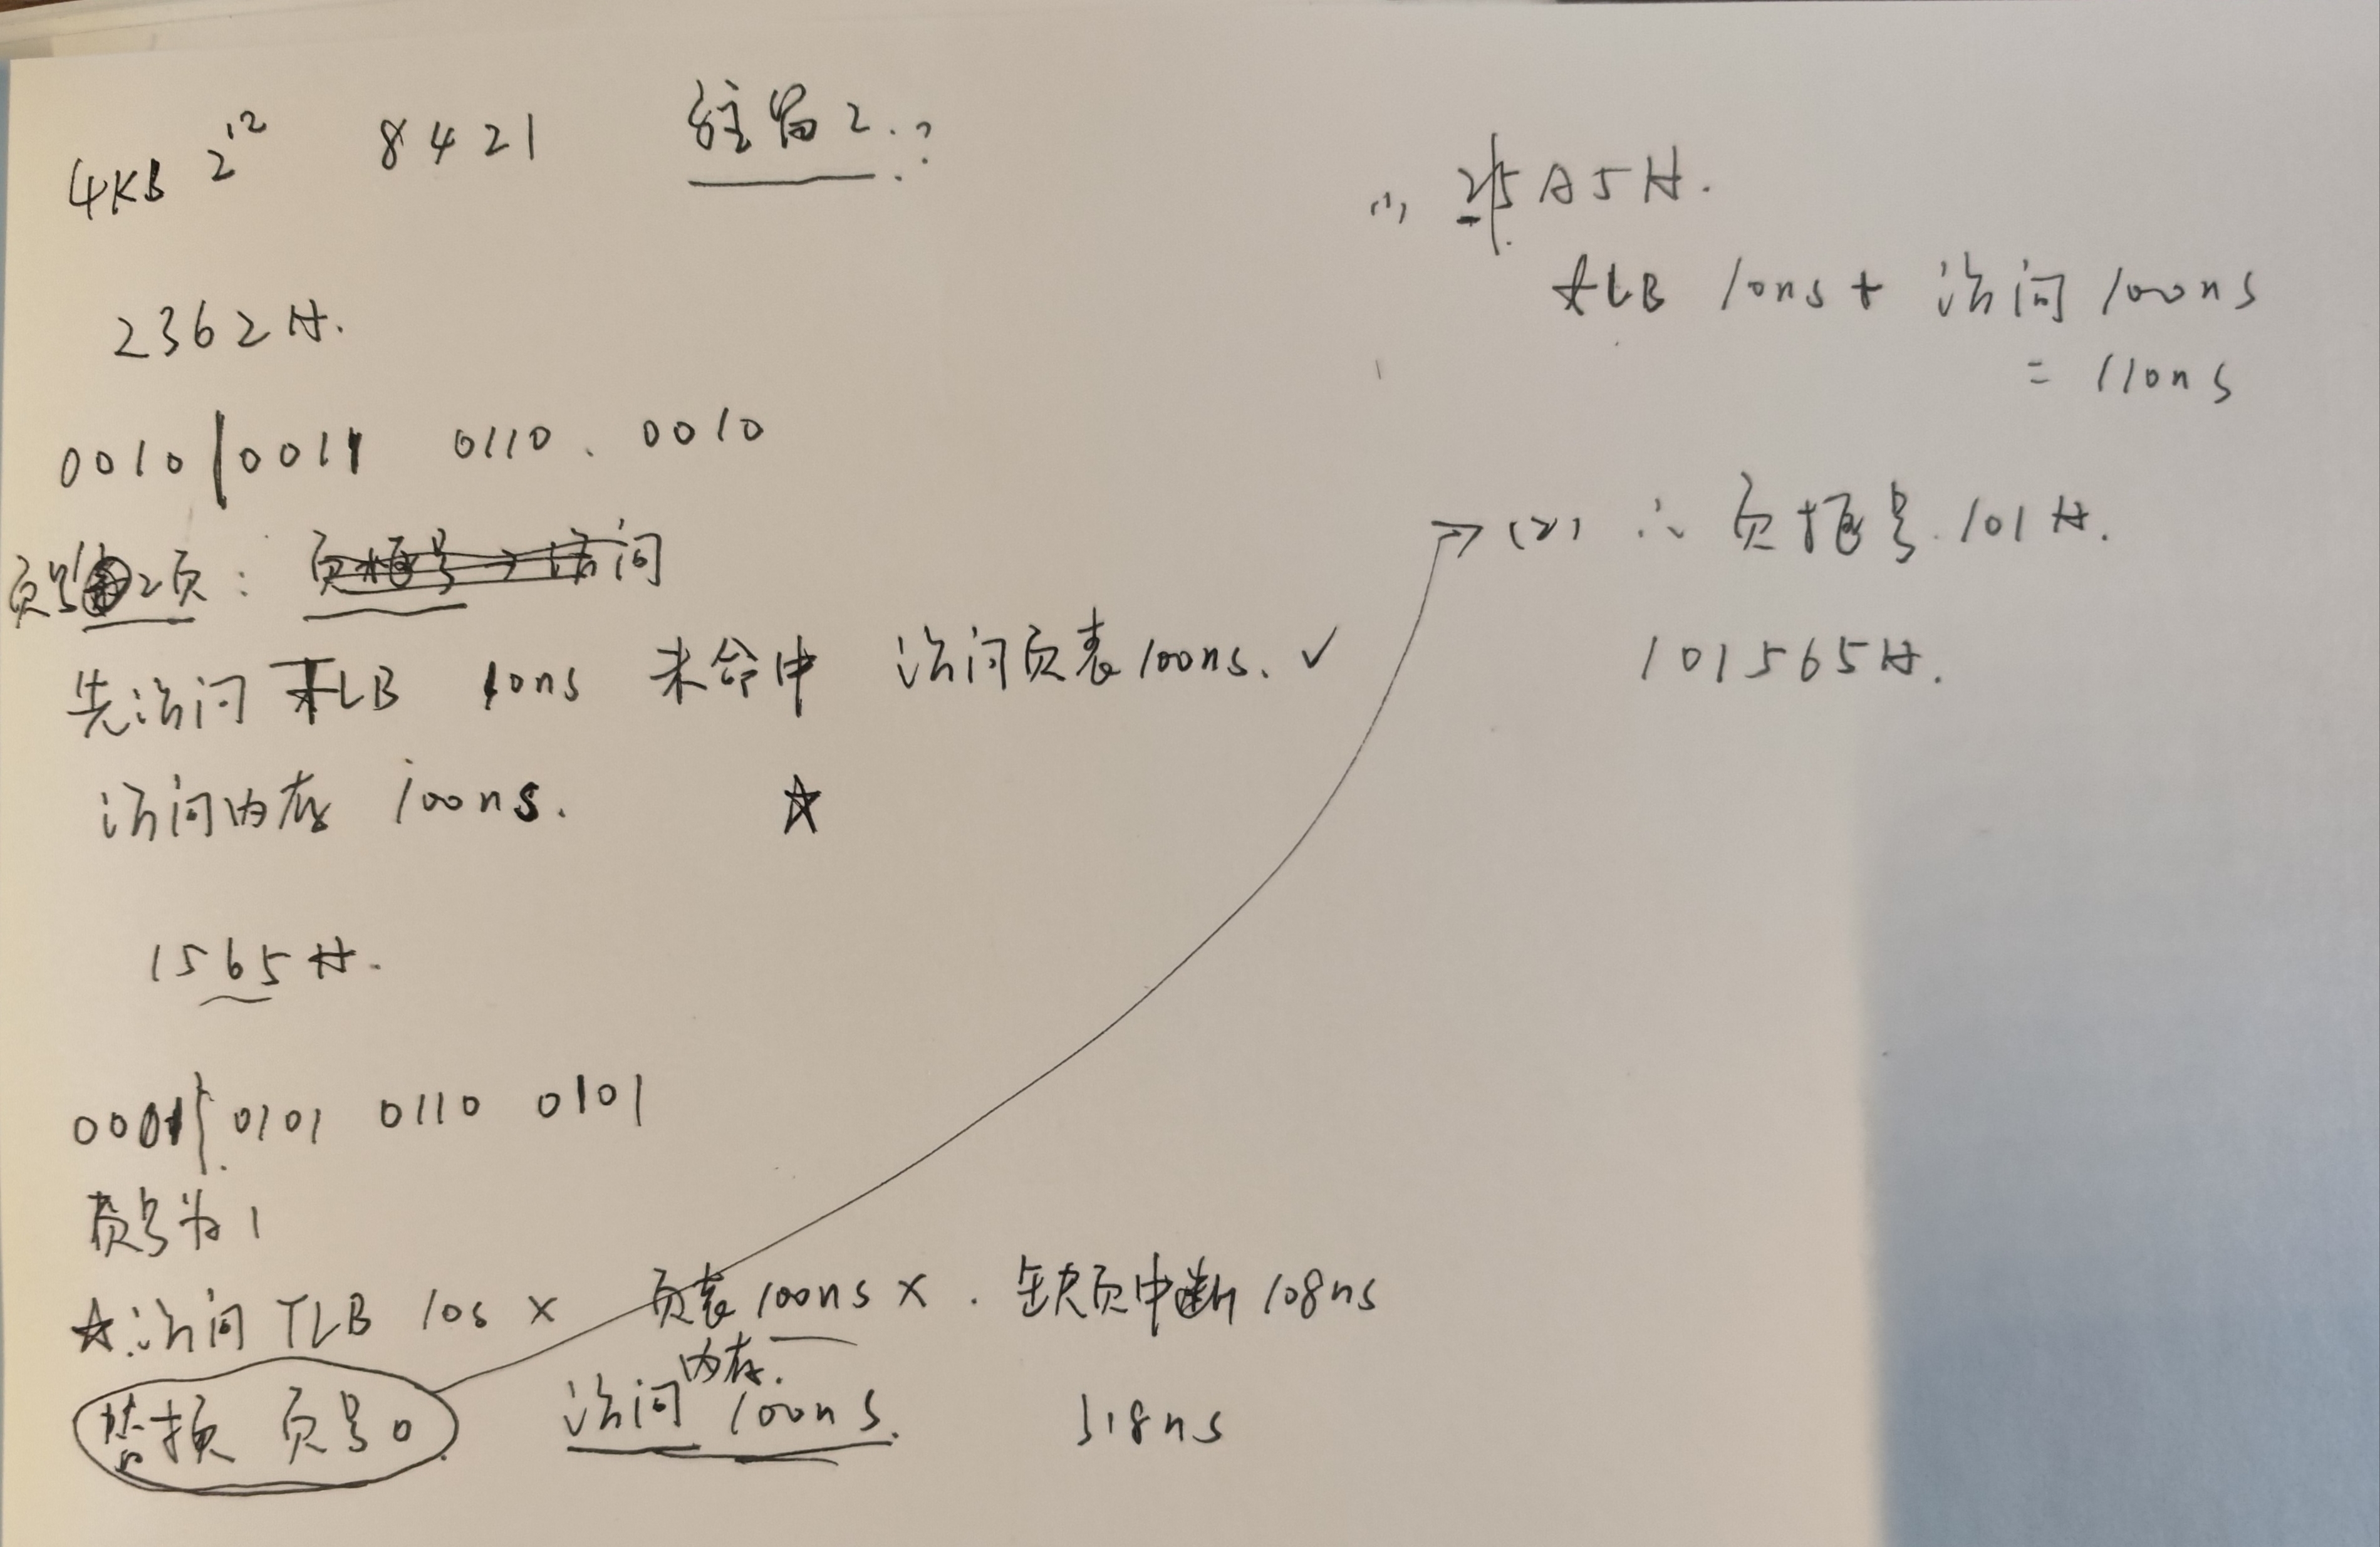 4KB 2^12 8421 驻留2.?
2362H.
0010|0011 0110. 0010
页号2页: 页框号→访问
先访问TLB 10ns 未命中 访问页表100ns. ✓
访问内存 100ns. ☆
1565H.
0001|0101 0110 0101
页号为1
☆访问TLB 10s × 页表100ns ×. 缺页中断 108ns
内存.
替换 页号0 访问 100ns. 318ns
(1) 25A5H.
TLB 10ns + 访问 100ns
= 110ns
→(2) ∴ 页框号. 101H.
101565H.